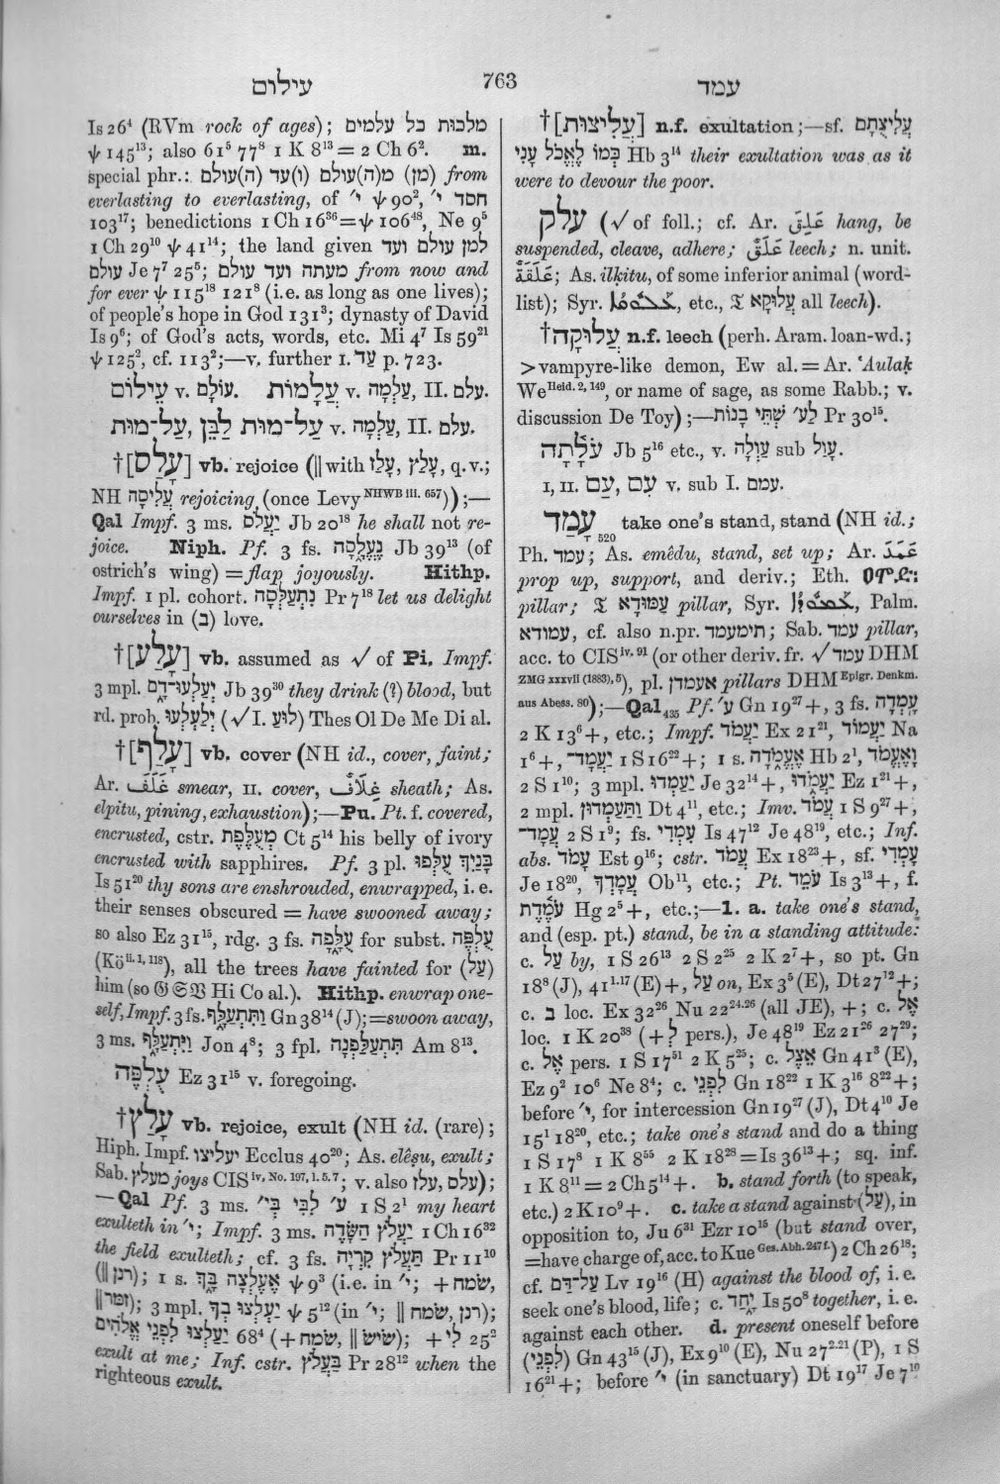 עילום
763
עמד
Is 26⁴ (RVm rock of ages); מלכות כל עלמים
ψ 145¹³; also 61⁵ 77⁸ 1 K 8¹³ = 2 Ch 6². m.
special phr.: (מן) מ(ה)עולם (ו)עד (ה)עולם from
everlasting to everlasting, of י׳ ψ 90², חסד י׳
103¹⁷; benedictions 1 Ch 16³⁶ = ψ 106⁴⁸, Ne 9⁵
1 Ch 29¹⁰ ψ 41¹⁴; the land given למן עולם ועד
עולם Je 7⁷ 25⁵; מעתה ועד עולם from now and
for ever ψ 115¹⁸ 121⁸ (i.e. as long as one lives);
of people's hope in God 131³; dynasty of David
Is 9⁶; of God's acts, words, etc. Mi 4⁷ Is 59²¹
ψ 125², cf. 113²;—v. further I. עַד p. 723.
עֵילוֹם v. עוֹלָם. עֲלָמוֹת v. עַלְמָה, II. עלם.
עַל־מוּת לַבֵּן, עַל־מוּת v. עַלְמָה, II. עלם.
†[עָלַס] vb. rejoice (‖ with עָלַץ, עָלַז, q.v.;
NH עֲלִיסָה rejoicing, (once Levy NHWB iii. 657));—
Qal Impf. 3 ms. יַעֲלֹס Jb 20¹⁸ he shall not re-
joice. Niph. Pf. 3 fs. נֶעֱלָסָה Jb 39¹³ (of
ostrich's wing) = flap joyously. Hithp.
Impf. 1 pl. cohort. נִתְעַלְּסָה Pr 7¹⁸ let us delight
ourselves in (ב) love.
†[עָלַע] vb. assumed as √ of Pi. Impf.
3 mpl. יְעַלְעוּ־דָם Jb 39³⁰ they drink (?) blood, but
rd. prob. יְלַעְלְעוּ (√ I. לוּע) Thes Ol De Me Di al.
†[עָלַף] vb. cover (NH id., cover, faint;
Ar. غَلَفَ smear, II. cover, غِلَافٌ sheath; As.
elpitu, pining, exhaustion);—Pu. Pt. f. covered,
encrusted, cstr. מְעֻלֶּפֶת Ct 5¹⁴ his belly of ivory
encrusted with sapphires. Pf. 3 pl. בָּנַיִךְ עֻלְּפוּ
Is 51²⁰ thy sons are enshrouded, enwrapped, i.e.
their senses obscured = have swooned away;
so also Ez 31¹⁵, rdg. 3 fs. עֻלָּפָה for subst. עֻלְפֶּה
(Kö ii. 1, 118), all the trees have fainted for (עַל)
him (so 𝔊 𝔖 𝔙 Hi Co al.). Hithp. enwrap one-
self, Impf. 3 fs. וַתִּתְעַלָּף Gn 38¹⁴ (J); = swoon away,
3 ms. וַיִּתְעַלָּף Jon 4⁸; 3 fpl. תִּתְעַלַּפְנָה Am 8¹³.
עֻלְפֶּה Ez 31¹⁵ v. foregoing.
†עָלַץ vb. rejoice, exult (NH id. (rare);
Hiph. Impf. יעליצו Ecclus 40²⁰; As. elêṣu, exult;
Sab. מעלץ joys CIS iv, No. 197, 1. 5. 7; v. also עלז, עלס);
—Qal Pf. 3 ms. ע׳ לִבִּי בַּי׳ 1 S 2¹ my heart
exulteth in י׳; Impf. 3 ms. יַעֲלֹץ הַשָּׂדֶה 1 Ch 16³²
the field exulteth; cf. 3 fs. תַּעֲלֹץ קִרְיָה Pr 11¹⁰
(‖ רנן); 1 s. אֶעֶלְצָה בָךְ ψ 9³ (i.e. in י׳; + שׂמח,
‖ זמר); 3 mpl. יַעְלְצוּ בְךָ ψ 5¹² (in י׳; ‖ שׂמח, רנן);
יַעַלְצוּ לִפְנֵי אֱלֹהִים 68⁴ (+ שׂמח, ‖ שׂישׂ); + לִי 25²
exult at me; Inf. cstr. בַּעֲלֹץ Pr 28¹² when the
righteous exult.
†[עֲלִיצוּת] n.f. exultation;—sf. עֲלִיצֻתָם
כְּמוֹ לֶאֱכֹל עָנִי Hb 3¹⁴ their exultation was as it
were to devour the poor.
עלק (√ of foll.; cf. Ar. عَلِقَ hang, be
suspended, cleave, adhere; عَلَقٌ leech; n. unit.
عَلَقَةٌ; As. ilḳitu, of some inferior animal (word-
list); Syr. ܥܠܩܬܐ, etc., 𝔗 עֲלוּקָא all leech).
†עֲלוּקָה n.f. leech (perh. Aram. loan-wd.;
> vampyre-like demon, Ew al. = Ar. ʿAulaḳ
We Heid. 2, 149, or name of sage, as some Rabb.; v.
discussion De Toy);—לַע׳ שְׁתֵּי בָנוֹת Pr 30¹⁵.
עֹלָתָה Jb 5¹⁶ etc., v. עַוְלָה sub עָוֶל.
I, II. עַם, עִם v. sub I. עמם.
עָמַד 520 take one's stand, stand (NH id.;
Ph. עמד; As. emêdu, stand, set up; Ar. عَمَدَ
prop up, support, and deriv.; Eth. ዐምድ፡
pillar; 𝔗 עַמּוּדָא pillar, Syr. ܥܡܘܕܐ, Palm.
עמודא, cf. also n.pr. תימעמד; Sab. עמד pillar,
acc. to CIS iv. 91 (or other deriv. fr. √ עמד DHM
ZMG xxxvii (1883), 5), pl. אעמדן pillars DHM Epigr. Denkm.
aus Abess. 80);—Qal 435 Pf. ע׳ Gn 19²⁷ +, 3 fs. עָמְדָה
2 K 13⁶ +, etc.; Impf. יַעֲמֹד Ex 21²¹, יַעֲמוֹד Na
1⁶ +, יַעֲמָד־ 1 S 16²² +; 1 s. אֶעֱמֹדָה Hb 2¹, וָאֶעֱמֹד
2 S 1¹⁰; 3 mpl. יַעַמְדוּ Je 32¹⁴ +, יַעֲמֹדוּ Ez 1²¹ +,
2 mpl. וַתַּעַמְדוּן Dt 4¹¹, etc.; Imv. עֲמֹד 1 S 9²⁷ +,
עֲמָד־ 2 S 1⁹; fs. עִמְדִי Is 47¹² Je 48¹⁹, etc.; Inf.
abs. עָמֹד Est 9¹⁶; cstr. עֲמֹד Ex 18²³ +, sf. עָמְדִי
Je 18²⁰, עֲמָדְךָ Ob¹¹, etc.; Pt. עֹמֵד Is 3¹³ +, f.
עֹמֶדֶת Hg 2⁵ +, etc.;—1. a. take one's stand,
and (esp. pt.) stand, be in a standing attitude:
c. עַל by, 1 S 26¹³ 2 S 2²⁵ 2 K 2⁷ +, so pt. Gn
18⁸ (J), 41¹·¹⁷ (E) +, עַל on, Ex 3⁵ (E), Dt 27¹² +;
c. ב loc. Ex 32²⁶ Nu 22²⁴·²⁶ (all JE), +; c. אֶל
loc. 1 K 20³⁸ (+ לְ pers.), Je 48¹⁹ Ez 21²⁶ 27²⁹;
c. אֶל pers. 1 S 17⁵¹ 2 K 5²⁵; c. אֵצֶל Gn 41³ (E),
Ez 9² 10⁶ Ne 8⁴; c. לִפְנֵי Gn 18²² 1 K 3¹⁶ 8²² +;
before י׳, for intercession Gn 19²⁷ (J), Dt 4¹⁰ Je
15¹ 18²⁰, etc.; take one's stand and do a thing
1 S 17⁸ 1 K 8⁵⁵ 2 K 18²⁸ = Is 36¹³ +; sq. inf.
1 K 8¹¹ = 2 Ch 5¹⁴ +. b. stand forth (to speak,
etc.) 2 K 10⁹ +. c. take a stand against (עַל), in
opposition to, Ju 6³¹ Ezr 10¹⁵ (but stand over,
= have charge of, acc. to Kue Ges. Abh. 247 f.) 2 Ch 26¹⁸;
cf. עַל־דַּם Lv 19¹⁶ (H) against the blood of, i.e.
seek one's blood, life; c. יַחַד Is 50⁸ together, i.e.
against each other. d. present oneself before
(לִפְנֵי) Gn 43¹⁵ (J), Ex 9¹⁰ (E), Nu 27²·²¹ (P), 1 S
16²¹ +; before י׳ (in sanctuary) Dt 19¹⁷ Je 7¹⁰